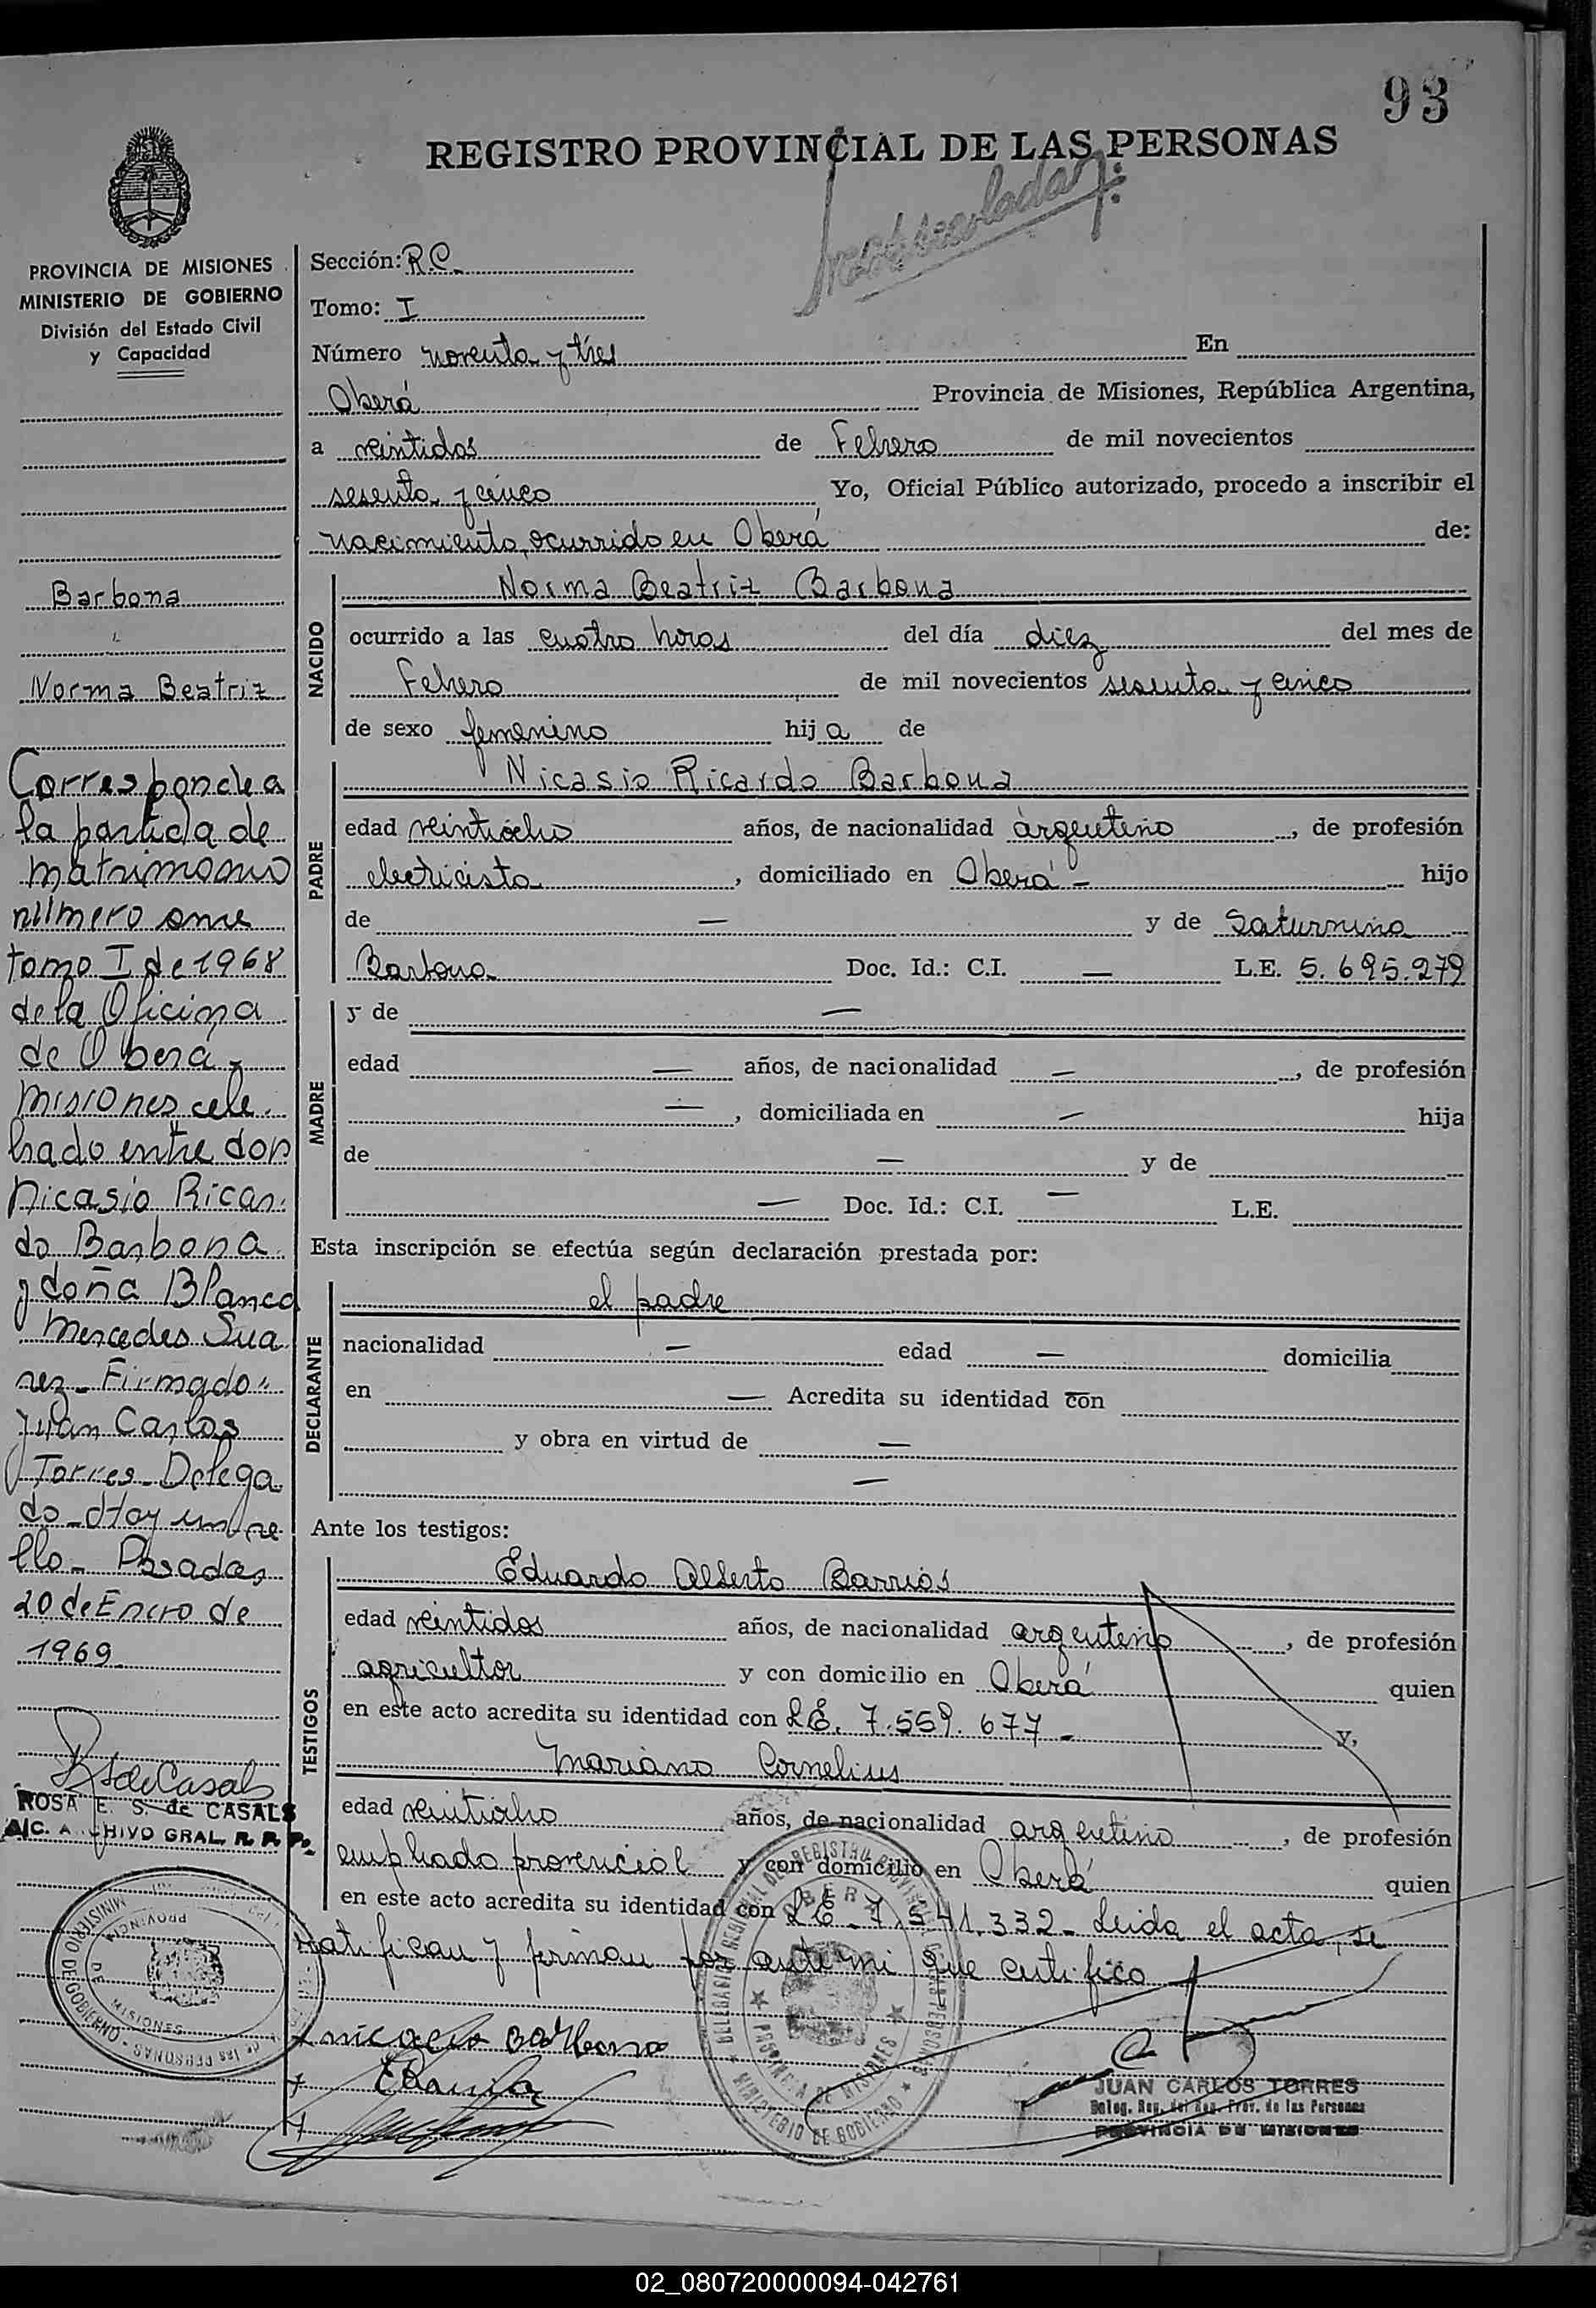 93
REGISTRO PROVINCIAL DE LAS PERSONAS
PROVINCIA DE MISIONES
MINISTERIO DE GOBIERNO
División del Estado Civil
y Capacidad
Barbona
Norma Beatriz
Corresponde a
la partida de
matrimonio
número once
tomo I de 1968
de la Oficina
de Oberá -
Misiones cele
brado entre don
Nicasio Ricar
do Barbona
y doña Blanca
Mercedes Sua
rez - Firmado:
Juan Carlos
Torres - Delega
do - Hay un se
llo - Posadas
20 de Enero de
1969
RSdeCasals
ROSA E. S. de CASALS
A/C. ARCHIVO GRAL. R. P. P.
MINISTERIO DE GOBIERNO
PROVINCIA DE MISIONES
de las PERSONAS
Sección: R.C.
Tomo: I
Número noventa y tres En
Oberá Provincia de Misiones, República Argentina,
a veintidos de Febrero de mil novecientos
sesenta y cinco, Yo, Oficial Público autorizado, procedo a inscribir el
nacimiento, ocurrido en Oberá de:
NACIDO
Norma Beatriz Barbona
ocurrido a las cuatro horas del día diez del mes de
Febrero de mil novecientos sesenta y cinco
de sexo femenino hij a de
PADRE
Nicasio Ricardo Barbona
edad veintiocho años, de nacionalidad argentino, de profesión
electricista, domiciliado en Oberá - hijo
de — y de Saturnina
Barbona Doc. Id.: C.I. — L.E. 5.695.279
MADRE
y de —
edad — años, de nacionalidad —, de profesión
—, domiciliada en — hija
de — y de
— Doc. Id.: C.I. — L.E.
Esta inscripción se efectúa según declaración prestada por:
DECLARANTE
el padre
nacionalidad — edad — domicilia
en — Acredita su identidad con
y obra en virtud de —
—
Ante los testigos:
TESTIGOS
Eduardo Alberto Barrios
edad veintidos años, de nacionalidad argentino, de profesión
agricultor y con domicilio en Oberá quien
en este acto acredita su identidad con L.E. 7.559.677 - y,
Mariano Cornelius
edad veintiocho años, de nacionalidad argentino, de profesión
empleado provincial y con domicilio en Oberá quien
en este acto acredita su identidad con L.E. 7.541.332 - Leida el acta, se
ratifican y firman por ante mi que certifico
nicacio Barbona
DELEGACION REGIONAL DEL REGISTRO PROVINCIAL DE LAS PERSONAS
OBERA
PROVINCIA DE MISIONES
MINISTERIO DE GOBIERNO
JUAN CARLOS TORRES
Deleg. Reg. del Reg. Prov. de las Personas
PROVINCIA DE MISIONES
02_080720000094-042761